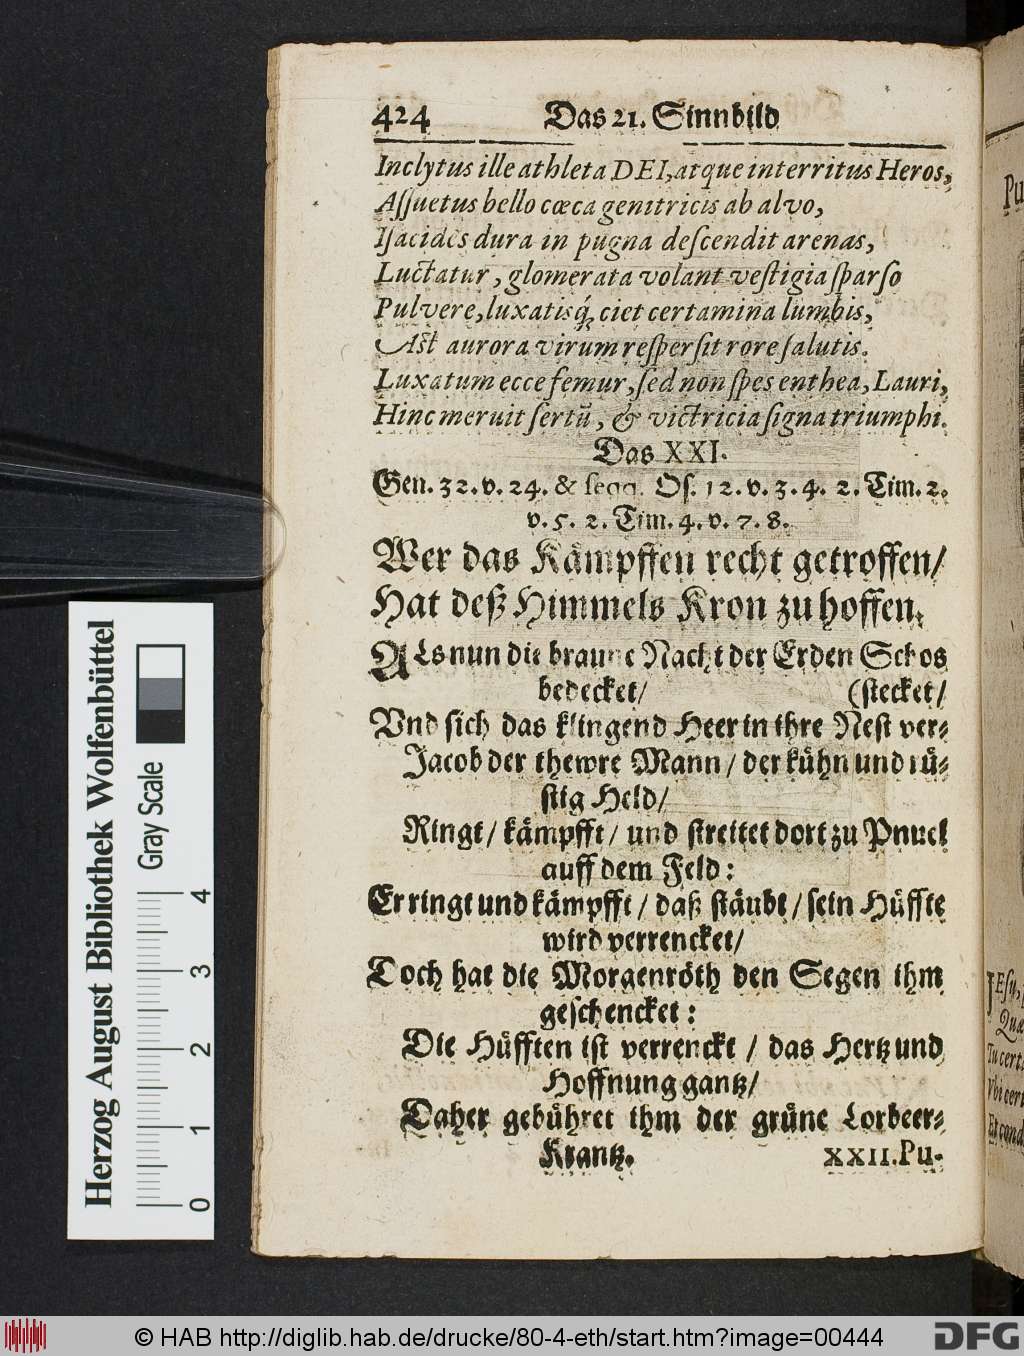 424 Das 21. Sinnbild
Inclytus ille athleta DEI, atque interritus Heros,
Aſſuetus bello cœca genitricis ab alvo,
Iſacides dura in pugna deſcendit arenas,
Luctatur, glomerata volant veſtigia ſparſo
Pulvere, luxatisq́; ciet certamina lumbis,
Aſt aurora virum reſperſit rore ſalutis.
Luxatum ecce femur, ſed non ſpes enthea, Lauri,
Hinc meruit ſertū, & victricia ſigna triumphi.
Das XXI.
Gen. 32. v. 24. & ſeqq. Oſ. 12. v. 3. 4. 2. Tim. 2.
v. 5. 2. Tim. 4. v. 7. 8.
Wer das Kämpffen recht getroffen/
Hat deß Himmels Kron zu hoffen.
ALs nun die braune Nacht der Erden Schos
bedecket/ (ſtecket/
Vnd ſich das klingend Heer in ihre Neſt ver-
Jacob der thewre Mann / der kühn und rü-
ſtig Held/
Ringt/ kämpfft/ und ſtreitet dort zu Pnuel
auff dem Feld:
Er ringt und kämpfft / daß ſtäubt / ſein Hüffte
wird verrencket/
Doch hat die Morgenröth den Segen ihm
geſchencket:
Die Hüfften iſt verrenckt / das Hertz und
Hoffnung gantz/
Daher gebühret ihm der grüne Lorbeer-
Krantz. XXII. Pu-
Pu
JEſu,
Qua
Tu cert
Vbi cert
Et cond
Herzog August Bibliothek Wolfenbüttel
Gray Scale
0 1 2 3 4
© HAB http://diglib.hab.de/drucke/80-4-eth/start.htm?image=00444
DFG